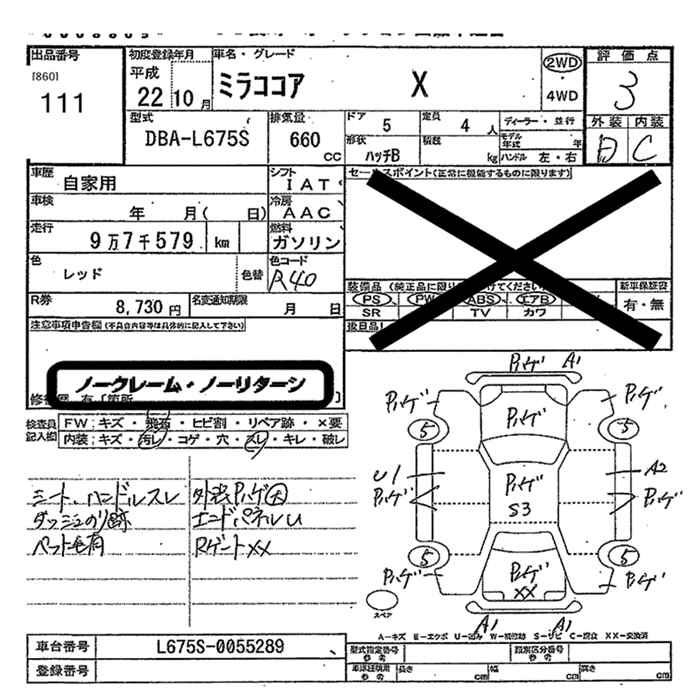 出品番号
[860]
111
初度登録年月
平成
22 10 月
車名・グレード
ミラココア X
2WD
・
4WD
評価点
3
型式
DBA-L675S
排気量
660
CC
ドア
5
定員
4 人
ディーラー・並行
外装 内装
D C
形状
ハッチB
積載
kg
モデル
年式 年
ハンドル 左・右
車歴
自家用
シフト
IAT
セールスポイント(正常に機能するものに限ります)
車検
年 月( 日)
冷房
AAC
走行
9万7千579 km
燃料
ガソリン
色
レッド
色替
色コード
R40
装備品
PS PW ABS エアB
SR TV カワ
新車保証書
有・無
R券
8,730 円
名変通知期限
月 日
後日品
注意事項申告欄(不具合内容等は具体的に記入して下さい)
ノークレーム・ノーリターン
検査員
記入欄
FW:キズ・飛石・ヒビ割・リペア跡・×要
内装:キズ・汚レ・コゲ・穴・スレ・キレ・破レ
シート、ハンドルスレ
ダッシュのり跡
ペット毛有
外装Pハゲ大
エンドパネルU
Rゲートxx
Pハゲ A1
Pハゲ Pハゲ Pハゲ
5 5
U1 A2
Pハゲ Pハゲ Pハゲ
S3
5 5
Pハゲ Pハゲ Pハゲ
XX
A1 A1
スペア
A-キズ E-エクボ U-凹み W-補修跡 S-サビ C-腐食 XX-交換済
車台番号
L675S-0055289
型式指定番号
参考
類別区分番号
参考
登録番号
参考
長さ cm
幅 cm
高さ cm